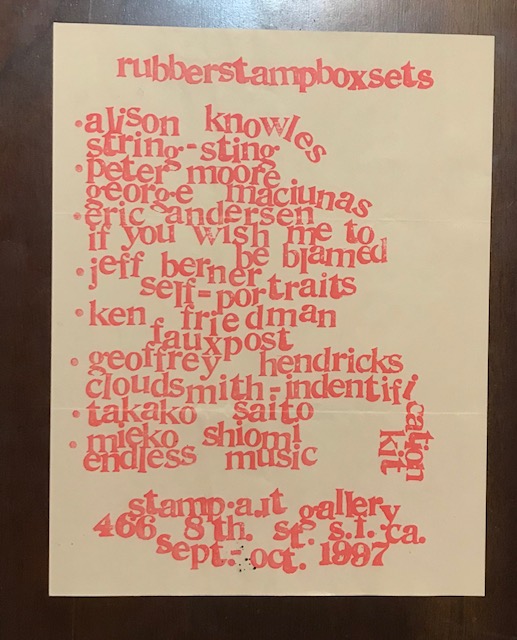 rubberstampboxsets
•alison knowles
string-sting
•peter moore
george maciunas
•eric andersen
if you wish me to
be blamed
•jeff berner
self-portraits
•ken friedman
fauxpost
•geoffrey hendricks
cloudsmith-indentification
kit
•takako saito
•mieko shiomi
endless music
stamp.art gallery
466 8th. st. s.f. ca.
sept.-oct. 1997